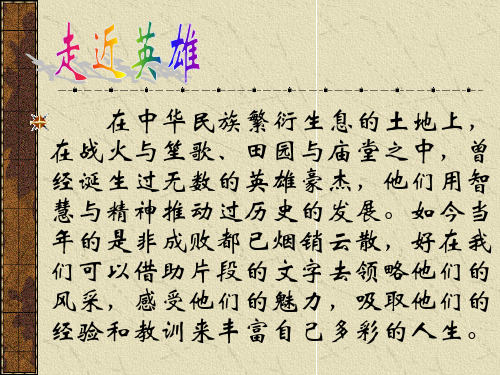 走近英雄
在中华民族繁衍生息的土地上，
在战火与笙歌、田园与庙堂之中，曾
经诞生过无数的英雄豪杰，他们用智
慧与精神推动过历史的发展。如今当
年的是非成败都已烟销云散，好在我
们可以借助片段的文字去领略他们的
风采，感受他们的魅力，吸取他们的
经验和教训来丰富自己多彩的人生。